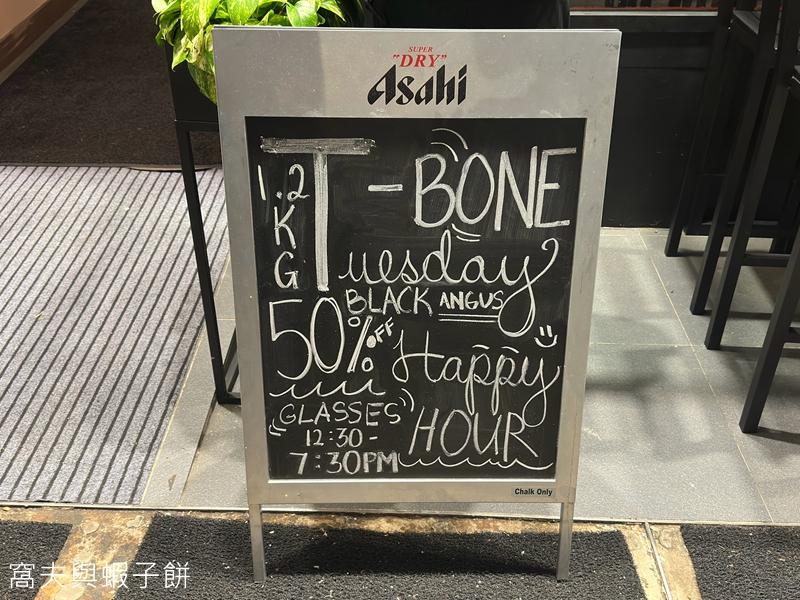 SUPER
"DRY"
Asahi
1.2KG T-BONE
Tuesday
BLACK ANGUS
50% OFF
Happy
HOUR
GLASSES
12:30-
7:30PM
Chalk Only
窩夫與蝦子餅